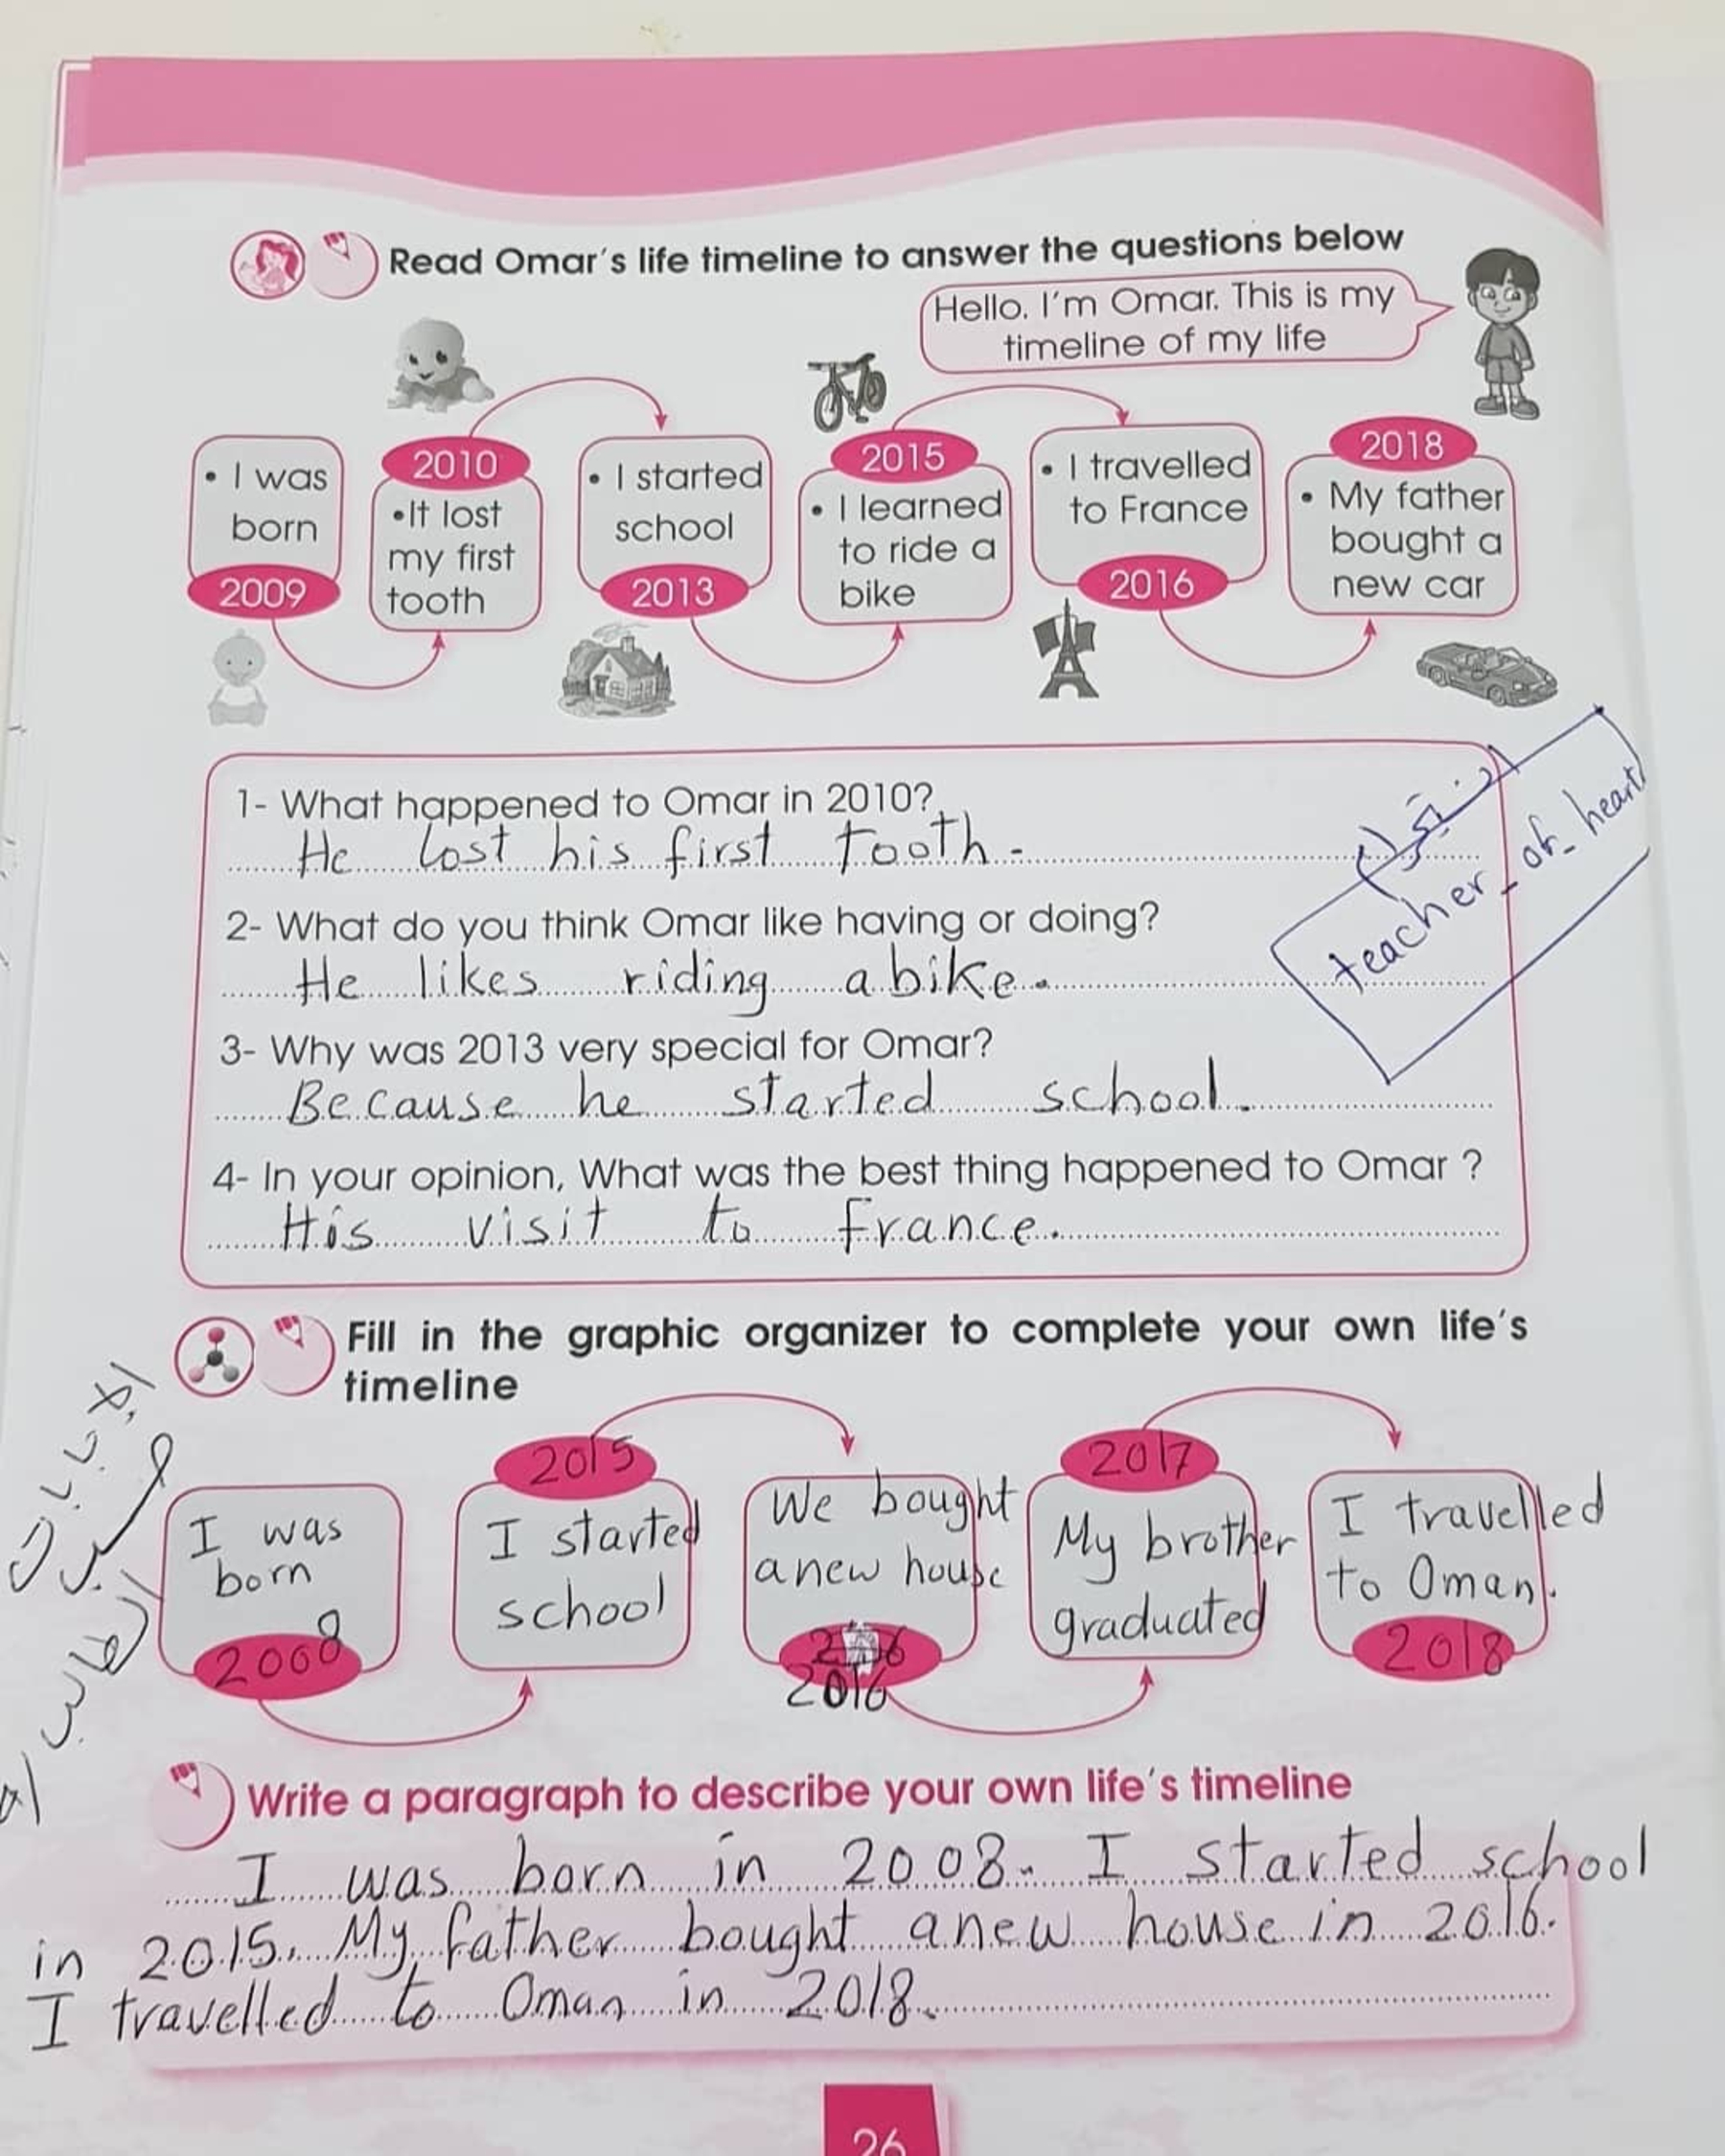 Read Omar's life timeline to answer the questions below
Hello. I'm Omar. This is my
timeline of my life
• I was
born
2009
2010
•It lost
my first
tooth
• I started
school
2013
2015
• I learned
to ride a
bike
• I travelled
to France
2016
2018
• My father
bought a
new car
1- What happened to Omar in 2010?
He lost his first tooth.
2- What do you think Omar like having or doing?
He likes riding a bike.
3- Why was 2013 very special for Omar?
Because he started school.
4- In your opinion, What was the best thing happened to Omar ?
His visit to france.
teacher_of_heart
Fill in the graphic organizer to complete your own life's
timeline
I was
born
2008
2015
I started
school
We bought
a new house
2016
2016
2017
My brother
graduated
I travelled
to Oman.
2018
إجابات
حسب
الطالب
Write a paragraph to describe your own life's timeline
I was born in 2008. I started school
in 2015. My father bought a new house in 2016.
I travelled to Oman in 2018.
26